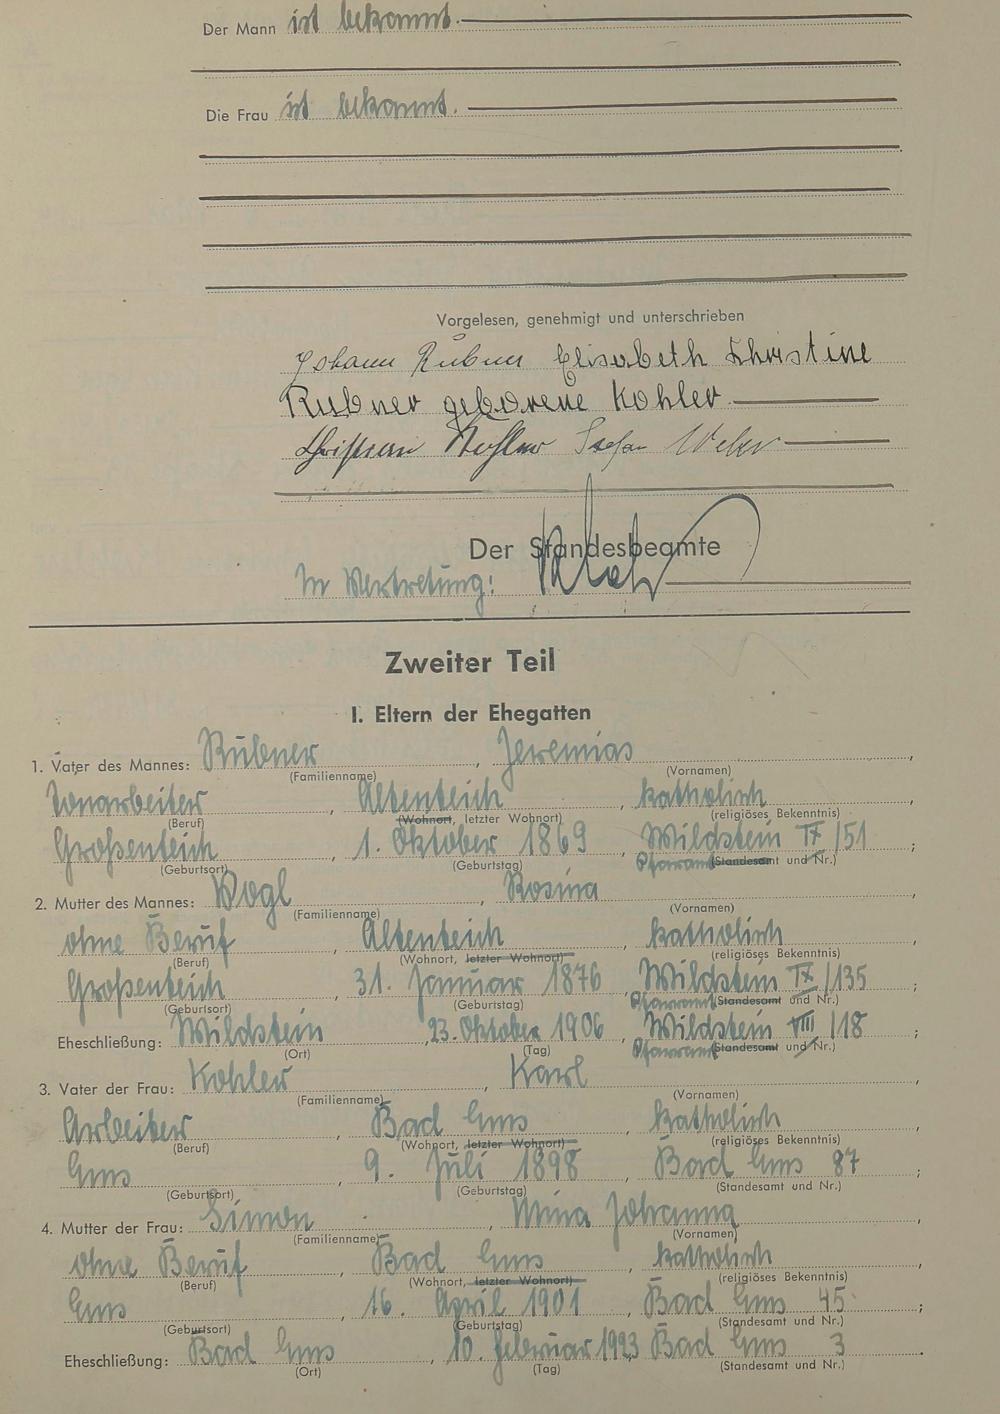 Der Mann ist bekannt.
Die Frau ist bekannt.
Vorgelesen, genehmigt und unterschrieben
Johann Rübner Elisabeth Christine
Rübner geborene Kohler
Christian Kohler Stefan Weber
Der Standesbeamte
In Vertretung:
Zweiter Teil
I. Eltern der Ehegatten
1. Vater des Mannes: Rübner, Jeremias,
(Familienname) (Vornamen)
Tonarbeiter, Altenteich, katholisch,
(Beruf) (Wohnort, letzter Wohnort) (religiöses Bekenntnis)
Großenteich, 1. Oktober 1869, Wildstein IX/51;
(Geburtsort) (Geburtstag) Pfarramt (Standesamt und Nr.)
2. Mutter des Mannes: Vogl, Rosina,
(Familienname) (Vornamen)
ohne Beruf, Altenteich, katholisch,
(Beruf) (Wohnort, letzter Wohnort) (religiöses Bekenntnis)
Großenteich, 31. Januar 1876, Wildstein IX/135;
(Geburtsort) (Geburtstag) Pfarramt (Standesamt und Nr.)
Eheschließung: Wildstein, 23. Oktober 1906, Wildstein VIII/18;
(Ort) (Tag) Pfarramt (Standesamt und Nr.)
3. Vater der Frau: Kohler, Karl,
(Familienname) (Vornamen)
Arbeiter, Bad Ems, katholisch,
(Beruf) (Wohnort, letzter Wohnort) (religiöses Bekenntnis)
Ems, 9. Juli 1898, Bad Ems 87;
(Geburtsort) (Geburtstag) (Standesamt und Nr.)
4. Mutter der Frau: Simon, Mina Johanna,
(Familienname) (Vornamen)
ohne Beruf, Bad Ems, katholisch,
(Beruf) (Wohnort, letzter Wohnort) (religiöses Bekenntnis)
Ems, 16. April 1901, Bad Ems 45;
(Geburtsort) (Geburtstag) (Standesamt und Nr.)
Eheschließung: Bad Ems, 10. Februar 1923 Bad Ems 3.
(Ort) (Tag) (Standesamt und Nr.)